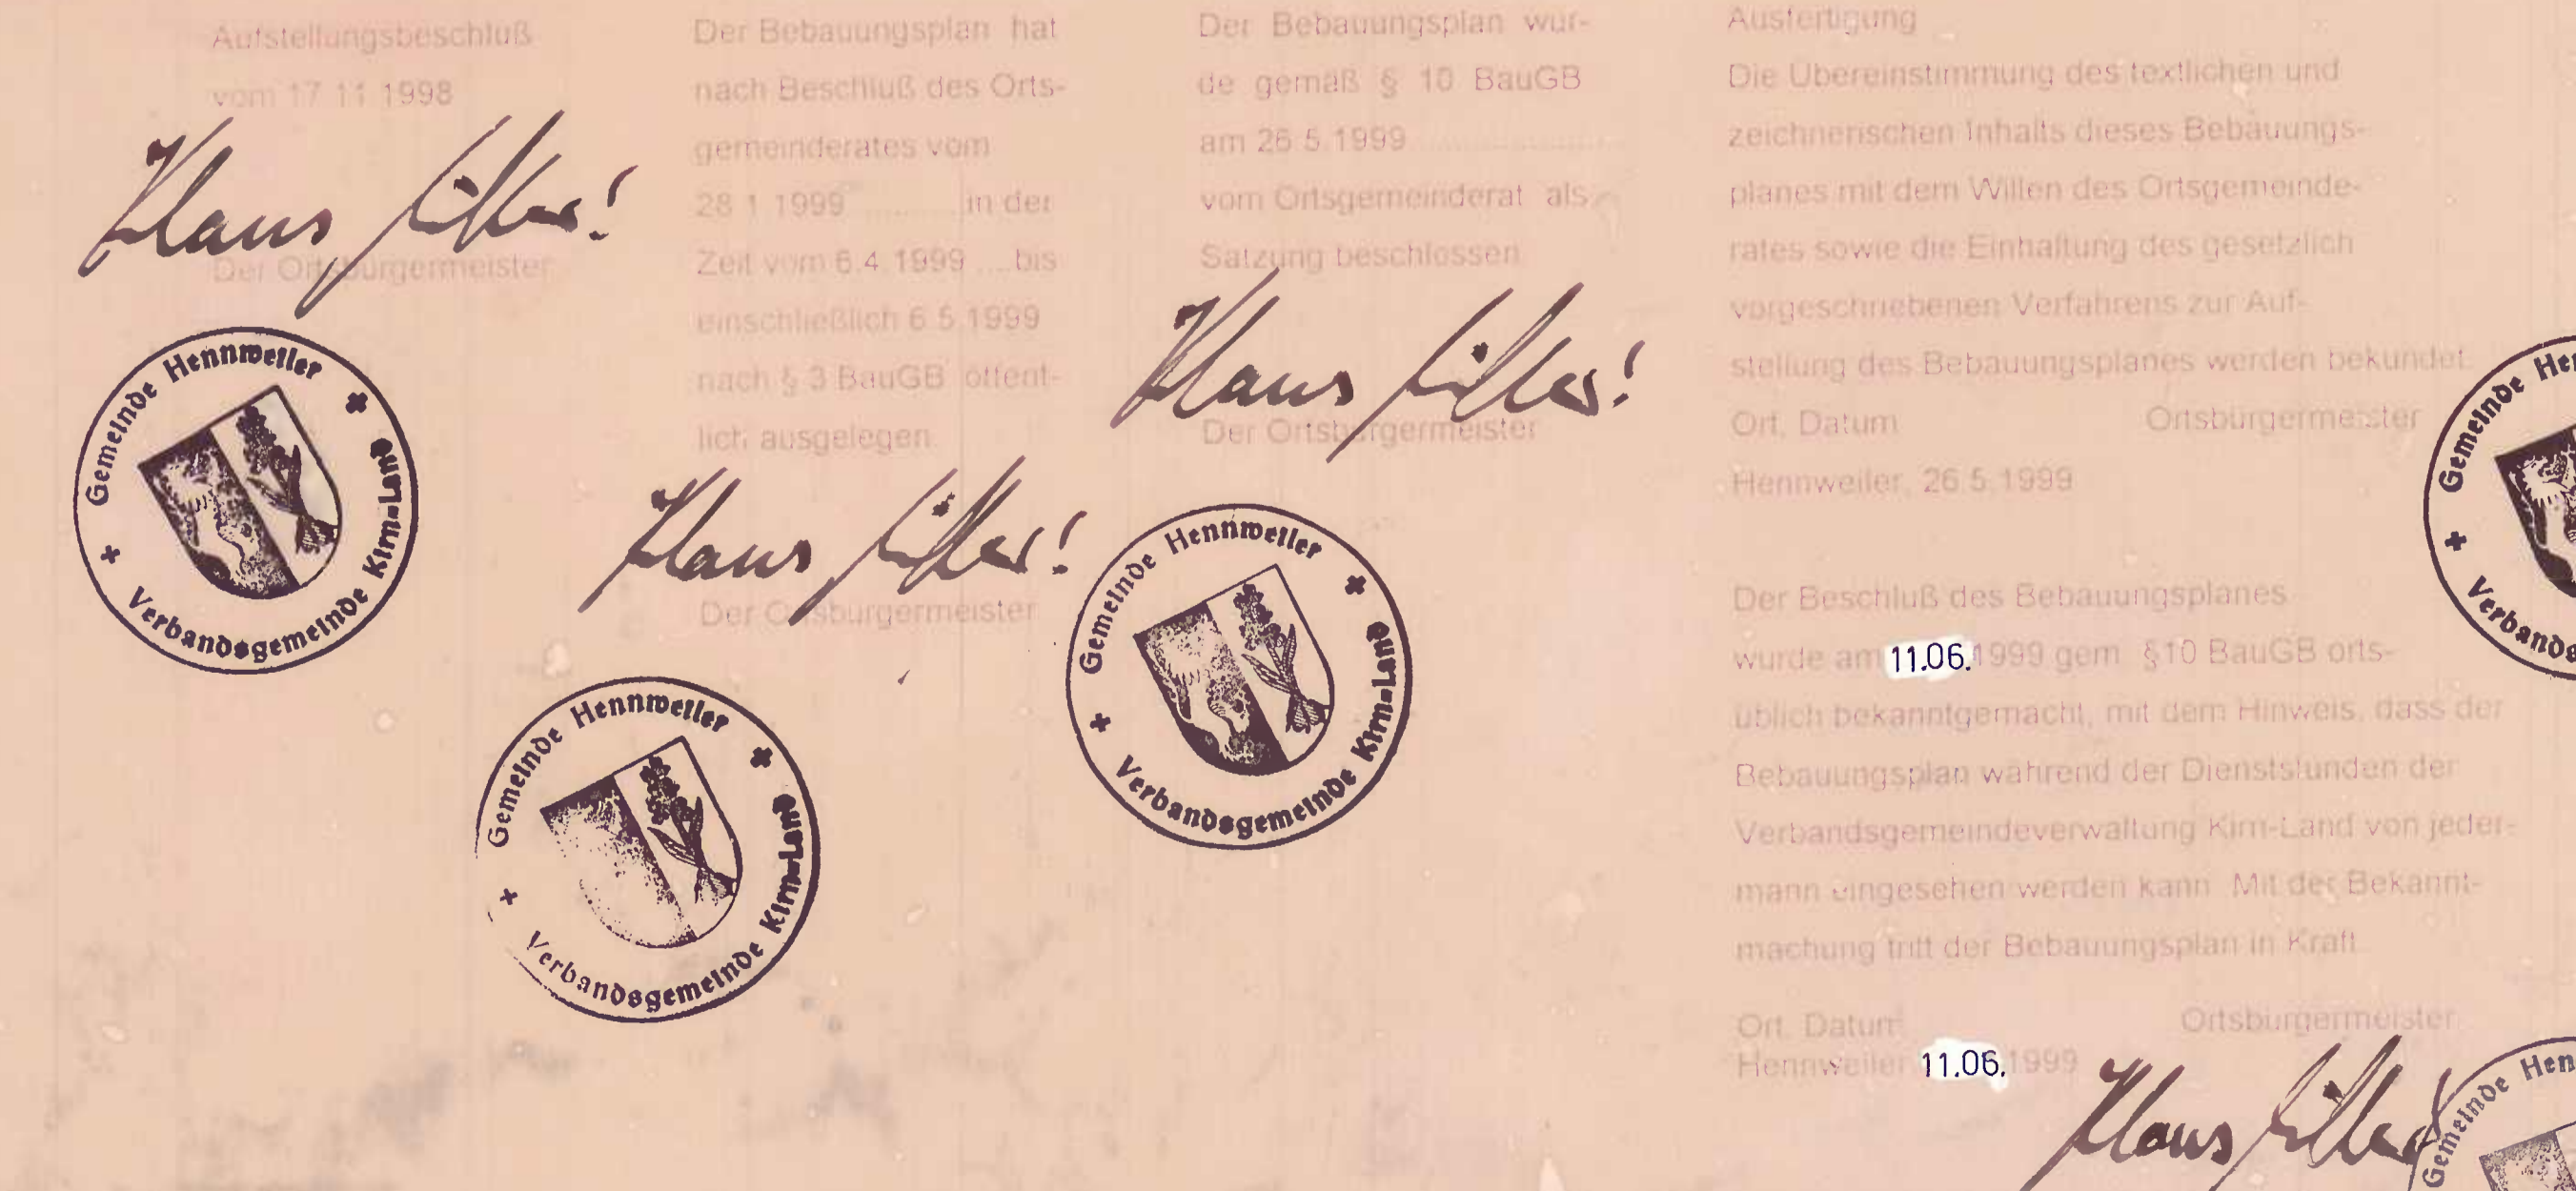 Aufstellungsbeschluß
vom 17.11.1998
Klaus
Der Ortsbürgermeister
Gemeinde Hennweiler
Verbandsgemeinde Kirn-Land
Der Bebauungsplan hat
nach Beschluß des Orts-
gemeinderates vom
28.1.1999 ............ in der
Zeit vom 6.4.1999 .... bis
einschließlich 6.5.1999
nach § 3 BauGB öffent-
lich ausgelegen.
Klaus
Der Ortsbürgermeister
Gemeinde Hennweiler
Verbandsgemeinde Kirn-Land
Der Bebauungsplan wur-
de gemäß § 10 BauGB
am 26.5.1999 ....................
vom Ortsgemeinderat als
Satzung beschlossen.
Klaus
Der Ortsbürgermeister
Gemeinde Hennweiler
Verbandsgemeinde Kirn-Land
Ausfertigung
Die Übereinstimmung des textlichen und
zeichnerischen Inhalts dieses Bebauungs-
planes mit dem Willen des Ortsgemeinde-
rates sowie die Einhaltung des gesetzlich
vorgeschriebenen Verfahrens zur Auf-
stellung des Bebauungsplanes werden bekundet.
Ort, Datum Ortsbürgermeister
Hennweiler, 26.5.1999
Gemeinde Hen
Verbands
Der Beschluß des Bebauungsplanes
wurde am 11.06.1999 gem. §10 BauGB orts-
üblich bekanntgemacht, mit dem Hinweis, dass der
Bebauungsplan während der Dienststunden der
Verbandsgemeindeverwaltung Kirn-Land von jeder-
mann eingesehen werden kann. Mit der Bekannt-
machung tritt der Bebauungsplan in Kraft.
Ort, Datum Ortsbürgermeister
Hennweiler 11.06.1999
Klaus
Gemeinde Hen